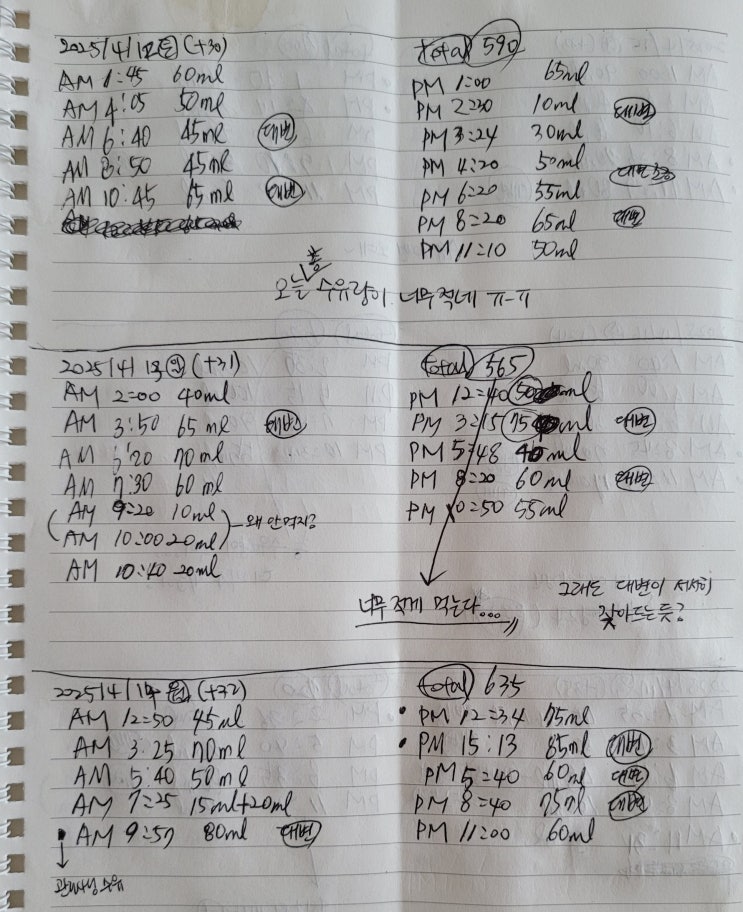 2025/4/12(토) (+30)
AM 1:45 60ml
AM 4:05 50ml
AM 6:40 45ml 대변
AM 8:50 45ml
AM 10:45 65ml 대변
total 590
PM 1:00 65ml
PM 2:30 10ml 대변
PM 3:24 30ml
PM 4:20 50ml
PM 6:20 55ml 대변 조금
PM 8:20 65ml 대변
PM 11:10 50ml
총
오늘 수유량이 너무 적네 ㅠ-ㅠ
2025/4/13(일) (+31)
AM 2:00 40ml
AM 3:50 65ml 대변
AM 5:20 70ml
AM 7:30 60ml
(AM 9:20 10ml
AM 10:00 20ml) 왜 안먹지?
AM 10:40 20ml
total 565
PM 12:40 50ml
PM 3:15 75ml 대변
PM 5:48 40ml
PM 8:20 60ml 대변
PM 10:50 55ml
너무 적게 먹는다...
그래도 대변이 서서히
잦아드는듯?
2025/4/14 월 (+32)
AM 12:50 45ml
AM 3:25 70ml
AM 5:40 50ml
AM 7:25 15ml+20ml
• AM 9:57 80ml 대변
수유
total 635
• PM 12:34 75ml
• PM 15:13 85ml 대변
PM 5:40 60ml 대변
PM 8:40 75ml 대변
PM 11:00 60ml